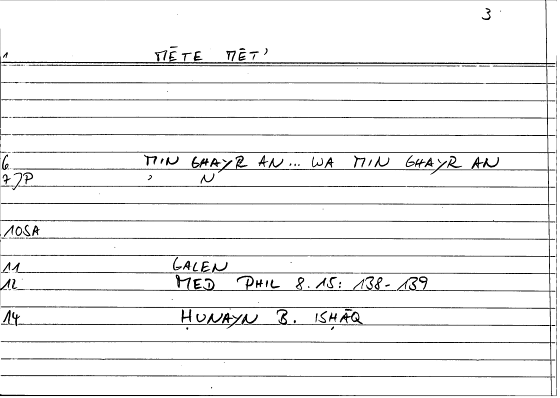 3
1 MĒTE MĒT'
6 MIN GHAYR AN... WA MIN GHAYR AN
7 JP ' N
10SA
11 GALEN
12 MED PHIL 8.15: 138-139
14 ḤUNAYN B. ISḤĀQ